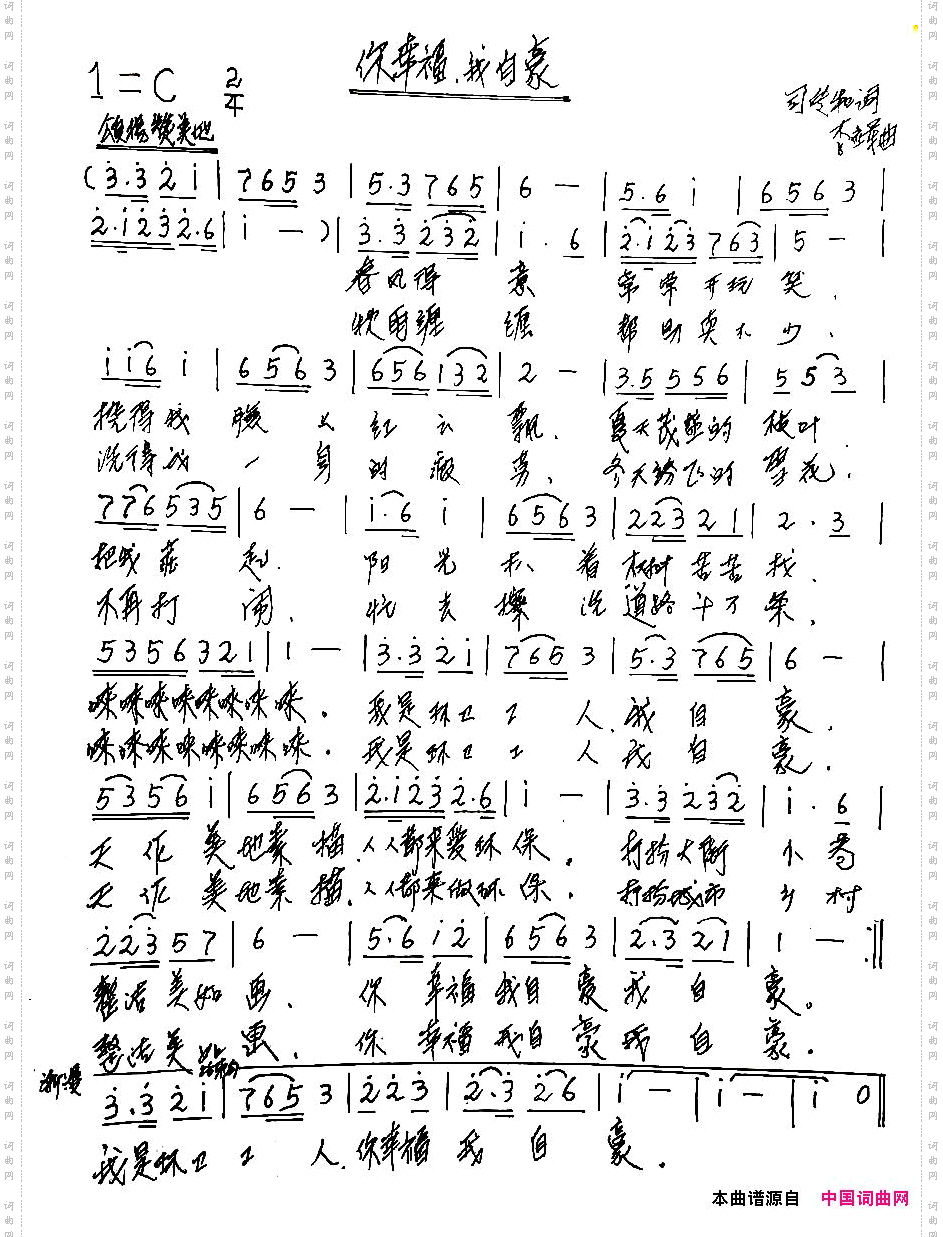 你幸福,我自豪
1=C 2/4
司传和词
颂扬赞美地
曲
(3.3 2 1 | 7 6 5 3 | 5.3 7 6 5 | 6 — | 5.6 i | 6 5 6 3 |
2.1 2 3 2.6 | i — )| 3.3 2 3 2 | i . 6 | 2.1 2 3 7 6 3 | 5 — |
春风得 意 常常开玩 笑,
帮助真不少,
i i 6 i | 6 5 6 3 | 6 5 6 1 3 2 | 2 — | 3.5 5 5 6 | 5 5 3 |
我 红云飘, 夏天茂盛的 枝叶
洗得我 一 身的疲劳, 冬天纷飞的 雪花,
7 7 6 5 3 5 | 6 — | i . 6 i | 6 5 6 3 | 2 2 3 2 1 | 2 . 3 |
把我 阳光 着 树叶苦苦找,
不再打 闹, 忙去擦洗道路 条,
5 3 5 6 3 2 1 | 1 — | 3.3 2 i | 7 6 5 3 | 5.3 7 6 5 | 6 — |
唻唻唻唻唻唻唻唻。 我是环卫工 人,我自 豪,
唻唻唻唻唻唻唻唻。 我是环卫工 人 我自 豪,
5 3 5 6 i | 6 5 6 3 | 2.1 2 3 2.6 | i — | 3.3 2 3 2 | i . 6 |
天作美地素描,人人都来爱环保。 打扮大街 小巷
天作美地素描,人人都来做环保。 打扮城市 乡村
2 2 3 5 7 | 6 — | 5.6 i 2 | 6 5 6 3 | 2.3 2 1 | 1 — :||
整洁美如画, 你幸福我自豪 我自 豪。
整洁美如画, 你幸福我自豪 我自 豪。
结束句
渐慢
3.3 2 i | 7 6 5 3 | 2 2 3 | 2.3 2 6 | i — | i — | i 0 ||
我是环卫工 人,你幸福 我自 豪。
本曲谱源自 中国词曲网
词曲网